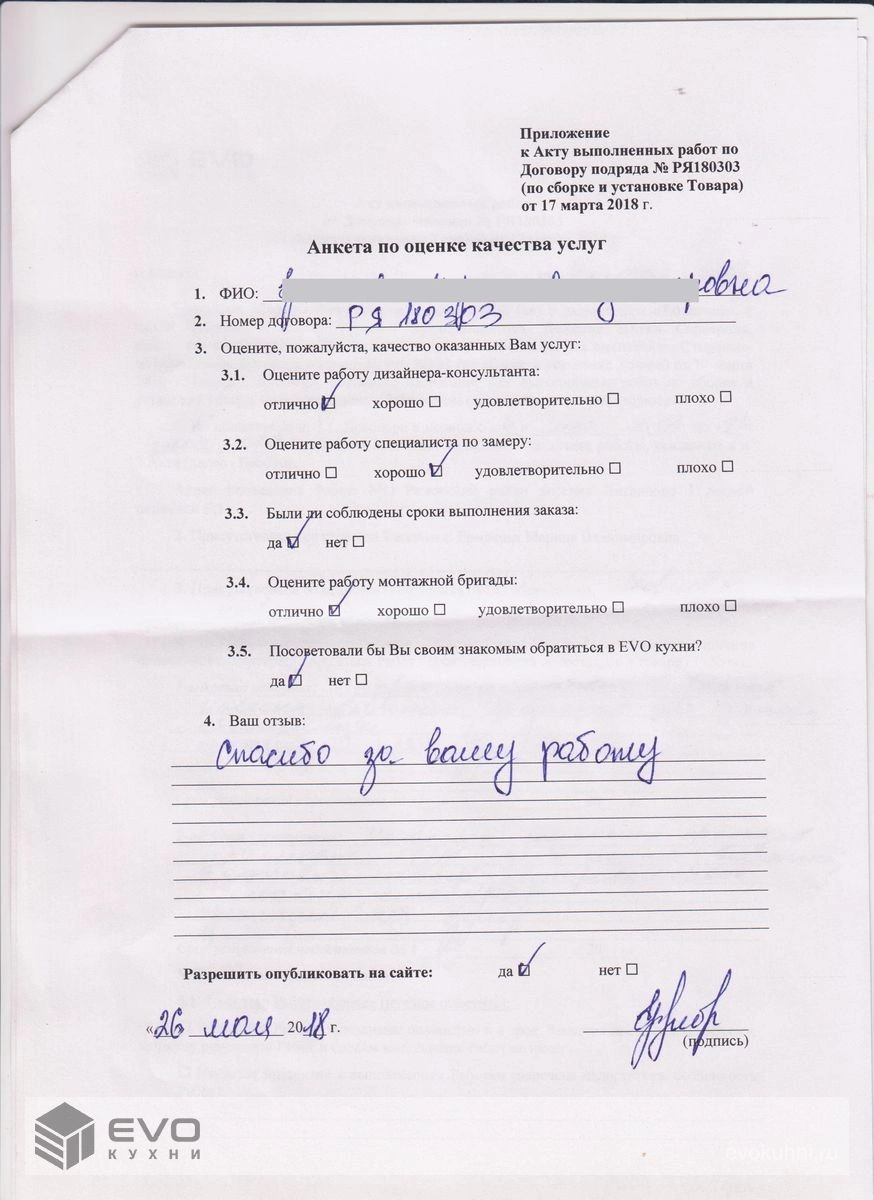 Приложение
к Акту выполненных работ по
Договору подряда № РЯ180303
(по сборке и установке Товара)
от 17 марта 2018 г.
Анкета по оценке качества услуг
1. ФИО:
2. Номер договора: РЯ 180303
3. Оцените, пожалуйста, качество оказанных Вам услуг:
3.1. Оцените работу дизайнера-консультанта:
отлично ☑ хорошо ☐ удовлетворительно ☐ плохо ☐
3.2. Оцените работу специалиста по замеру:
отлично ☐ хорошо ☑ удовлетворительно ☐ плохо ☐
3.3. Были ли соблюдены сроки выполнения заказа:
да ☑ нет ☐
3.4. Оцените работу монтажной бригады:
отлично ☑ хорошо ☐ удовлетворительно ☐ плохо ☐
3.5. Посоветовали бы Вы своим знакомым обратиться в EVO кухни?
да ☑ нет ☐
4. Ваш отзыв:
Спасибо за вашу работу
Разрешить опубликовать на сайте: да ☑ нет ☐
«26 мая 2018 г.
(подпись)
EVO
КУХНИ
evokuhni.ru